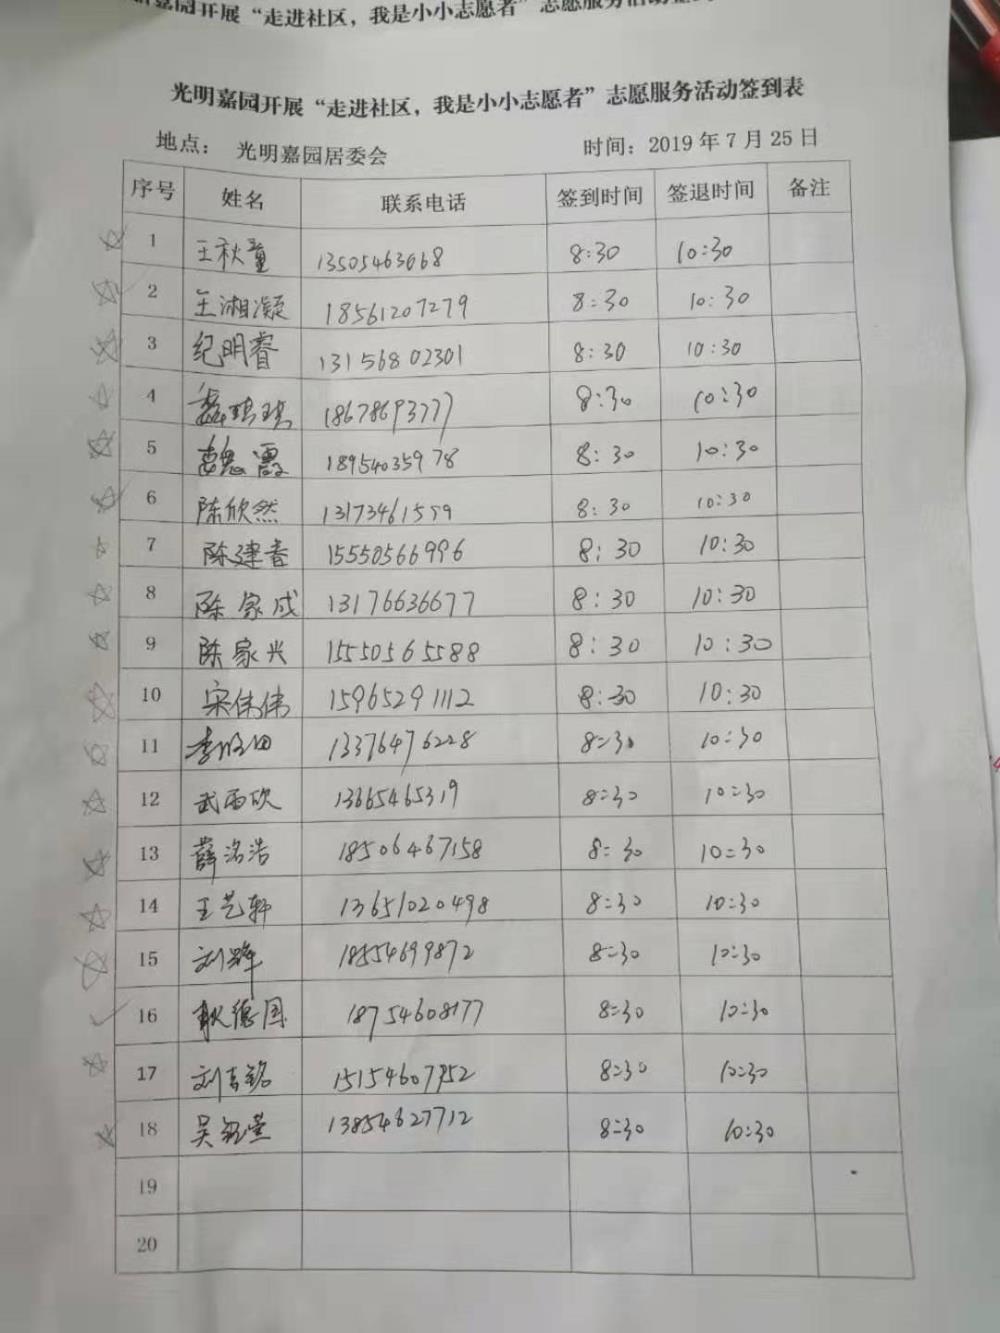 嘉园开展“走进社区，我是小小志愿者”志愿服务活动签
光明嘉园开展“走进社区，我是小小志愿者”志愿服务活动签到表
地点： 光明嘉园居委会 时间：2019年7月25日
序号 姓名 联系电话 签到时间 签退时间 备注
1 王秋童 13505463068 8:30 10:30
2 王湘凝 18561207279 8:30 10:30
3 纪明睿 13156802301 8:30 10:30
4 18678693777 8:30 10:30
5 18954035978 8:30 10:30
6 陈欣然 13173461559 8:30 10:30
7 陈建春 15550566996 8:30 10:30
8 陈家成 13176636677 8:30 10:30
9 陈家兴 15550565588 8:30 10:30
10 宋伟伟 15965291112 8:30 10:30
11 13376476228 8:30 10:30
12 武雨欣 13665465319 8:30 10:30
13 薛洺浩 18506467158 8:30 10:30
14 王艺轩 13651020498 8:30 10:30
15 18554699872 8:30 10:30
16 耿德国 18754608177 8:30 10:30
17 刘吉铭 15154607952 8:30 10:30
18 吴 13854627712 8:30 10:30
19
20